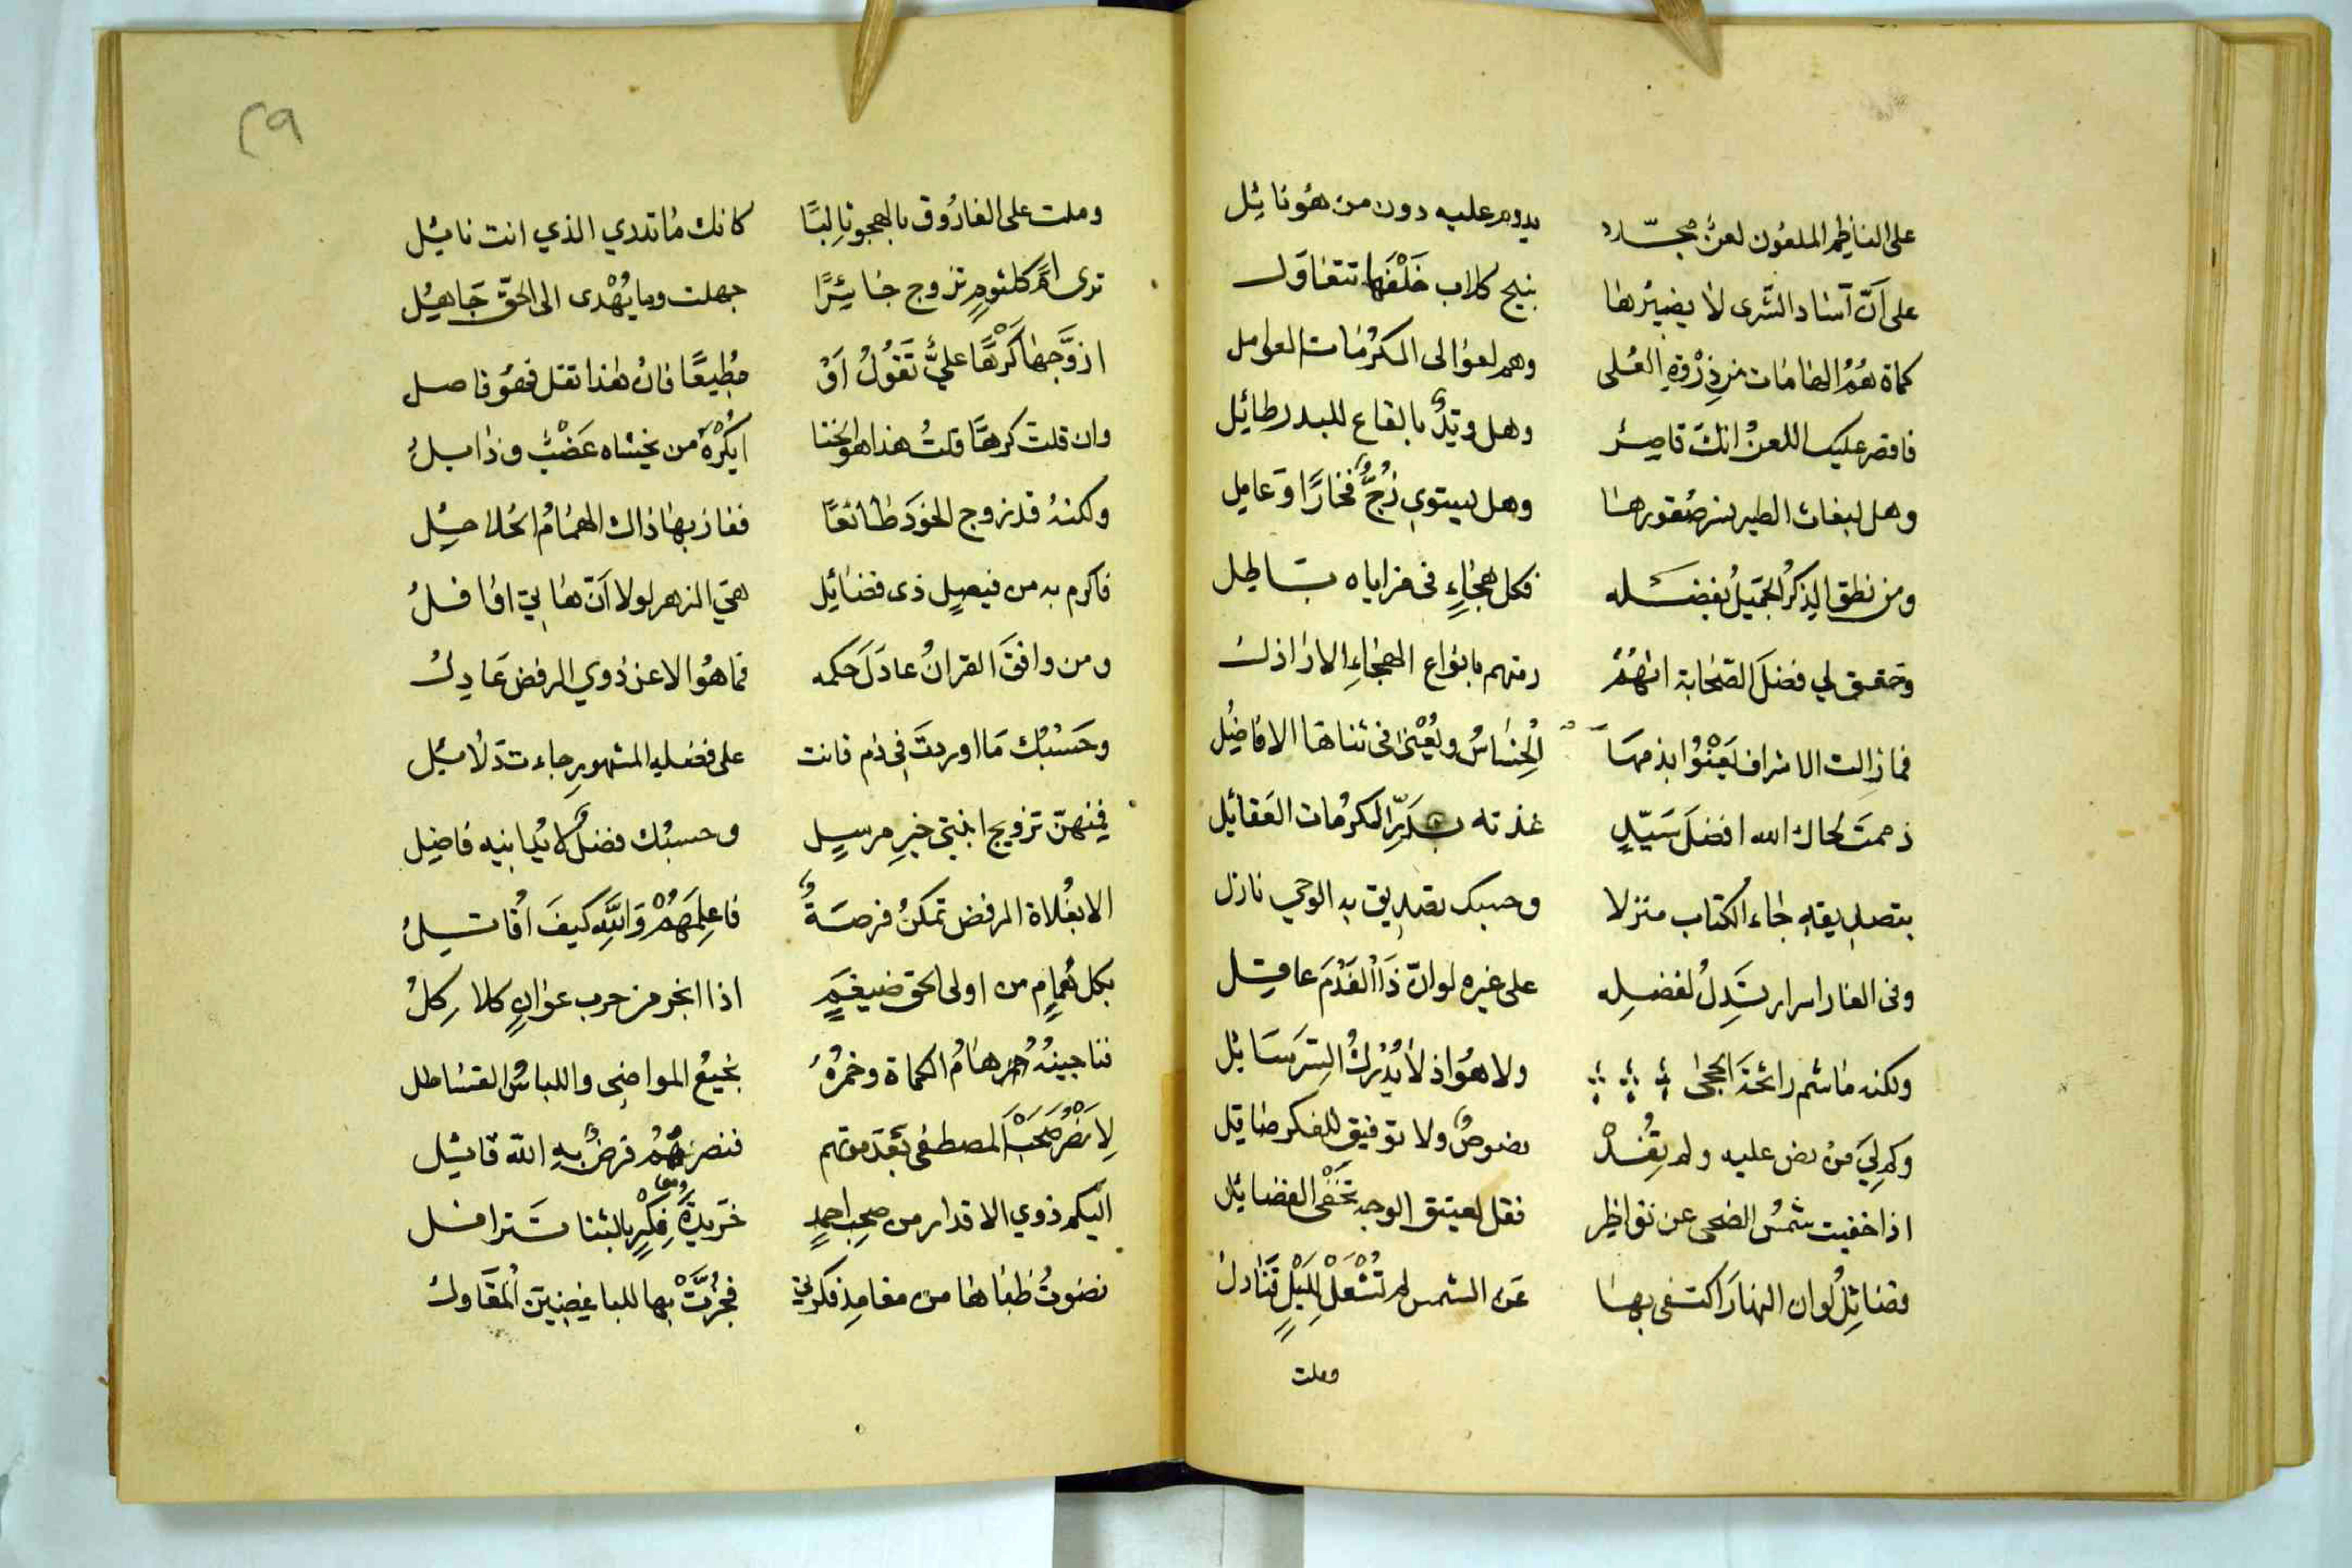 على الناظم الملعون لعن مجدد يدوم عليه دون من هو نائِل
على أنّ آساد الشّرى لا يضيرها بنبح كلاب خَلْفَها تتغاوَل
كماة هُمُ الهامات من ذِرْوةِ العُلى وهم لعوالى المكرُمات العوامل
فاقصر عليك اللعنُ انك قاصِرٌ وهل وتِدٌ بالقاع للبدر طائِل
وهل لبغاث الطير نسر صُقورها وهل يستوي زُجٌّ فخارًا وَعامِل
ومن نطق الذِكرُ الجميلُ بفضله فكل هجاءٍ فى مزاياه باطِل
وحَقق لي فضلَ الصّحابة انهُمُ رمتهم بانواع الهجاءِ الاراذل
فما زالت الاشراف يَعْنُوْا بذمهَا الخِسَاسُ ويُعْنىٰ فى ثناها الافاضِل
ذممتَ لحاك الله افضلَ سَيّدٍ غذته بدَرِّ المكرُمات العَقائِل
بتصديقهِ جاء الكتاب منزلا وحسبك تصديق به الوحي نازل
وفى الغار اسرار تَدِلُ لفضلِه على غيره لو انّ ذَا الفَدْمَ عاقِل
ولكنه ما شم رائحةَ الحِجىٰ ولا هوَ اذ لا يُدْركُ السِتَر سَائل
وكم لِيَ مِنْ نص عليه ولم تُفِدْ نصوصٌ ولا توفيق للفكر صاقِل
اذا خفيت شمسُ الضحى عن نواظِر فقل لعتيق الوجه تَخْفَى الفضائِل
فضائِلُ لو ان النهارَ اكتفى بها عَن الشمس لم تُشْعَلْ لِلَيْلٍ قَنَادل
وملت
٢٩
وملت على الفارُوق بالهجو ثالِبًا كانك ما تدري الذي انت نائِل
ترى امَّ كلثومٍ تزوج جائِرًا جهلت وما يُهْدى الى الحَقّ جَاهِل
ازوَّجها كَرْهًا عليٌّ تَقُوْلُ اَوْ مُطِيعًا فانْ هذا تقل فهُوَ فاصل
وان قلتَ كرهًا قلتُ هذا هو الخنا ايُكْرَهُ من يخشاه عَضْبٌ وذابلُ
ولكنهُ قد زوج الخَودَ طائعًا ففاز بها ذاك الهمُامُ الحُلاحِل
فاكرم به من فيصِلٍ ذى فضائِل هيَ الزهر لولا اَنّ هاتيّ افافلُ
ومن وافقَ القرانُ عادَلَ حكمه فما هُوَ الا عن ذوي الرفض عَادِل
وحَسْبُك مَا اوردتَ في ذم قانت على فضلهِ المشهورِ جاءت دَلائِل
فمِنهنّ تزويج ابنتي خيرِ مرسلٍ وحسبُك فضلٌ لا يُدانيه فاضِل
الا بغُلاة الرفض تمكنُ فرصَةٌ فاعلِمَهُمْ وَاللّهِ كيفَ اُقاتِلُ
بكل هُمامٍ من اولى الحق ضيغمٍ اذا انجر من حرب عوَانٍ كلاكِلُ
فناجينهُ هَامُ الكماة وخمرُهُ نجيعُ المواضى واللباسُ القساطل
لِاَنْصُرَ صَحْبَ المصطفى بَعْدَ موتهم فنصرهُمُ فرضٌ بهِ الله قائِل
اليكم ذوي الاقدار من صحبِ احمدٍ خَريدَةَ فِكْرٍ بالثنا تَترافل
نضَوتُ ظُباها من مغامدِ فكرتي فجُرَّتْ بها للباغِضِيَن المقَاول